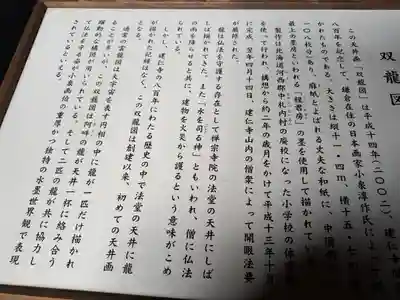 双龍図
この天井画「双龍図」は平成十四年（二〇〇二）、建仁寺
八百年を記念して、鎌倉在住の日本画家小泉淳作氏によって
かれたものである。大きさは縦十一・四ｍ、横十五・七
一〇八枚分）あり、麻紙とよばれる丈夫な和紙に、中国
最上の墨房といわれる「程君房」の墨を使用して描かれて
製作は北海道河西郡中札内村の廃校になった小学校の体
を使って行われ、構想から約二年の歳月をかけて平成十三年十月
に完成、翌年四月十四日、建仁寺山内の僧衆によって開眼法要
が厳修された。
龍は仏法を守護する存在として禅宗寺院の法堂の天井にしば
しば描かれてきた。また「水を司る神」ともいわれ、僧に仏法
の雨を降らせると共に、建物を火災から護るという意味がこめ
られている。
しかし、建仁寺の八百年にわたる歴史の中で法堂の天井に龍
が描かれた記録はなく、この双龍図は創建以来、初めての天井画
となる。
通常の雲龍図は大宇宙を表す円相の中に龍が一匹だけ描かれ
ることが多いが、この双龍図は阿吽の龍が天井一杯に絡み合う
躍動的な構図が用いられている。そして二匹の龍が共に協力し
て仏法を守る姿が小泉画伯の重厚かつ独特の水墨世界観で表現
されているといえる。